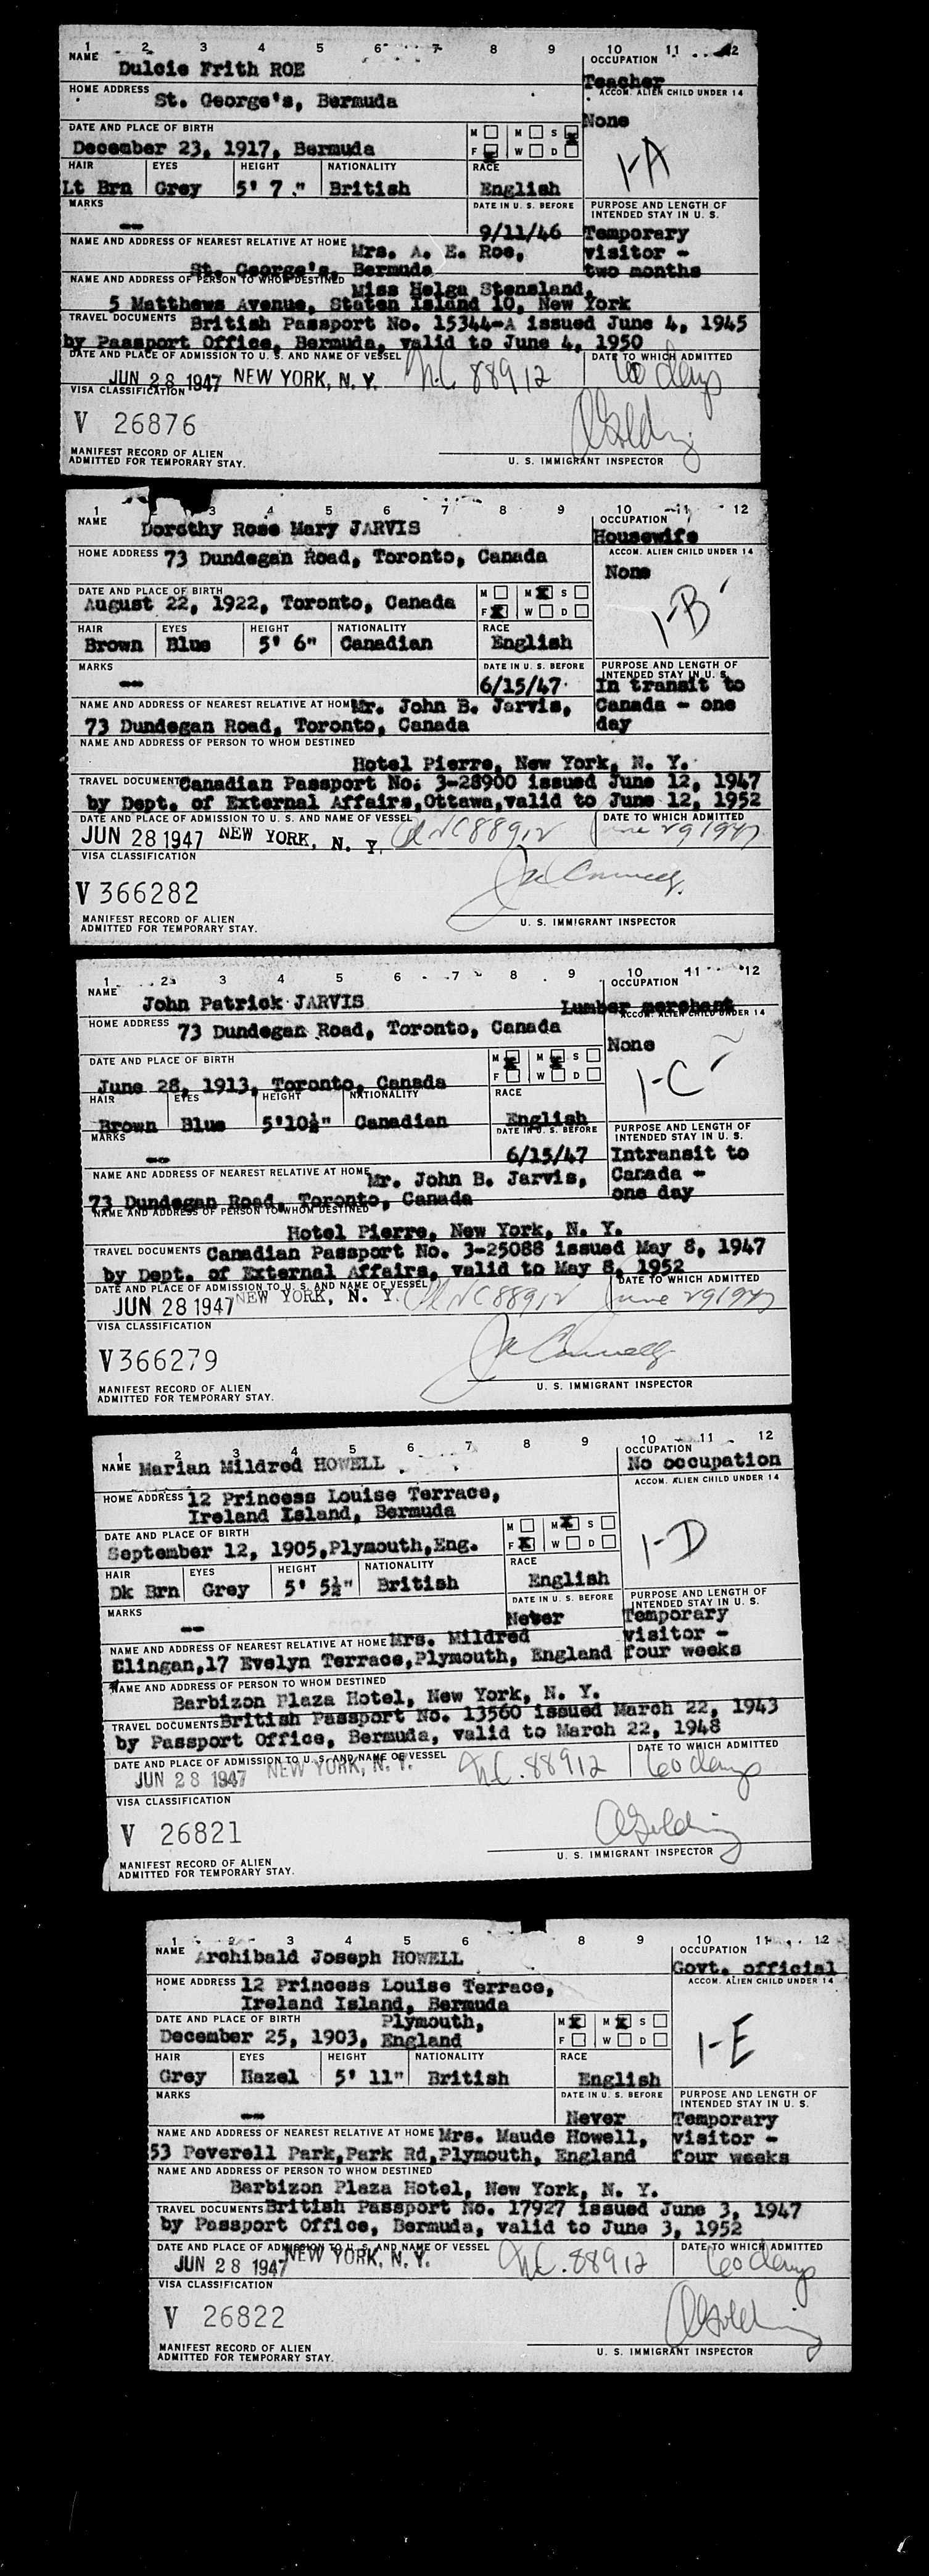 1 2 3 4 5 6 7 8 9 10 11 12
NAME Dulcie Frith ROE
OCCUPATION Teacher
HOME ADDRESS St. George's, Bermuda
ACCOM. ALIEN CHILD UNDER 14 None
DATE AND PLACE OF BIRTH M M S
December 23, 1917, Bermuda F W D
1-A
HAIR EYES HEIGHT NATIONALITY RACE
Lt Brn Grey 5' 7 " British English
MARKS DATE IN U. S. BEFORE PURPOSE AND LENGTH OF
INTENDED STAY IN U. S.
-- 9/11/46 Temporary
visitor -
two months
NAME AND ADDRESS OF NEAREST RELATIVE AT HOME Mrs. A. E. Roe,
St. George's, Bermuda
NAME AND ADDRESS OF PERSON TO WHOM DESTINED Miss Helga Stensland,
5 Matthews Avenue, Staten Island 10, New York
TRAVEL DOCUMENTS British Passport No. 15344-A issued June 4, 1945
by Passport Office, Bermuda, valid to June 4, 1950
DATE AND PLACE OF ADMISSION TO U. S. AND NAME OF VESSEL DATE TO WHICH ADMITTED
JUN 28 1947 NEW YORK, N. Y. N.C. 88912 60 days
VISA CLASSIFICATION
V 26876 AGolding
MANIFEST RECORD OF ALIEN
ADMITTED FOR TEMPORARY STAY. U. S. IMMIGRANT INSPECTOR
1 3 4 5 6 7 8 9 10 11 12
NAME Dorothy Rose Mary JARVIS
OCCUPATION Housewife
HOME ADDRESS 73 Dundegan Road, Toronto, Canada
ACCOM. ALIEN CHILD UNDER 14 None
DATE AND PLACE OF BIRTH M M S
August 22, 1922, Toronto, Canada F W D
1-B
HAIR EYES HEIGHT NATIONALITY RACE
Brown Blue 5' 6" Canadian English
MARKS DATE IN U. S. BEFORE PURPOSE AND LENGTH OF
INTENDED STAY IN U. S.
-- 6/15/47 In transit to
Canada - one
day
NAME AND ADDRESS OF NEAREST RELATIVE AT HOME Mr. John B. Jarvis,
73 Dundegan Road, Toronto, Canada
NAME AND ADDRESS OF PERSON TO WHOM DESTINED
Hotel Pierre, New York, N. Y.
TRAVEL DOCUMENTS Canadian Passport No. 3-28900 issued June 12, 1947
by Dept. of External Affairs, Ottawa, valid to June 12, 1952
DATE AND PLACE OF ADMISSION TO U. S. AND NAME OF VESSEL DATE TO WHICH ADMITTED
JUN 28 1947 NEW YORK, N. Y. NC88912 June 29 1947
VISA CLASSIFICATION
V 366282
MANIFEST RECORD OF ALIEN
ADMITTED FOR TEMPORARY STAY. U. S. IMMIGRANT INSPECTOR
1 2 3 4 5 6 7 8 9 10 11 12
NAME John Patrick JARVIS
OCCUPATION Lumber merchant
HOME ADDRESS 73 Dundegan Road, Toronto, Canada
ACCOM. ALIEN CHILD UNDER 14 None
DATE AND PLACE OF BIRTH M M S
June 28, 1913, Toronto, Canada F W D
1-C
HAIR EYES HEIGHT NATIONALITY RACE
Brown Blue 5'10½" Canadian English
MARKS DATE IN U. S. BEFORE PURPOSE AND LENGTH OF
INTENDED STAY IN U. S.
-- 6/15/47 Intransit to
Canada -
one day
NAME AND ADDRESS OF NEAREST RELATIVE AT HOME Mr. John B. Jarvis,
73 Dundegan Road, Toronto, Canada
NAME AND ADDRESS OF PERSON TO WHOM DESTINED
Hotel Pierre, New York, N. Y.
TRAVEL DOCUMENTS Canadian Passport No. 3-25088 issued May 8, 1947
by Dept. of External Affairs, valid to May 8, 1952
DATE AND PLACE OF ADMISSION TO U. S. AND NAME OF VESSEL DATE TO WHICH ADMITTED
JUN 28 1947 NEW YORK, N. Y. NC88912 June 29 1947
VISA CLASSIFICATION
V 366279
MANIFEST RECORD OF ALIEN
ADMITTED FOR TEMPORARY STAY. U. S. IMMIGRANT INSPECTOR
1 2 3 4 5 6 7 8 9 10 11 12
NAME Marian Mildred HOWELL
OCCUPATION No occupation
HOME ADDRESS 12 Princess Louise Terrace,
Ireland Island, Bermuda
ACCOM. ALIEN CHILD UNDER 14
DATE AND PLACE OF BIRTH M M S
September 12, 1905, Plymouth, Eng. F W D
1-D
HAIR EYES HEIGHT NATIONALITY RACE
Dk Brn Grey 5' 5½" British English
MARKS DATE IN U. S. BEFORE PURPOSE AND LENGTH OF
INTENDED STAY IN U. S.
-- Never Temporary
visitor -
four weeks
NAME AND ADDRESS OF NEAREST RELATIVE AT HOME Mrs. Mildred
Clingan, 17 Evelyn Terrace, Plymouth, England
NAME AND ADDRESS OF PERSON TO WHOM DESTINED
Barbizon Plaza Hotel, New York, N. Y.
TRAVEL DOCUMENTS British Passport No. 13560 issued March 22, 1943
by Passport Office, Bermuda, valid to March 22, 1948
DATE AND PLACE OF ADMISSION TO U. S. AND NAME OF VESSEL DATE TO WHICH ADMITTED
JUN 28 1947 NEW YORK, N. Y. N.C. 88912 60 days
VISA CLASSIFICATION
V 26821 AGolding
MANIFEST RECORD OF ALIEN
ADMITTED FOR TEMPORARY STAY. U. S. IMMIGRANT INSPECTOR
1 2 3 4 5 6 8 9 10 11 12
NAME Archibald Joseph HOWELL
OCCUPATION Govt. official
HOME ADDRESS 12 Princess Louise Terrace,
Ireland Island, Bermuda
ACCOM. ALIEN CHILD UNDER 14
DATE AND PLACE OF BIRTH Plymouth, M M S
December 25, 1903, England F W D
1-E
HAIR EYES HEIGHT NATIONALITY RACE
Grey Hazel 5' 11" British English
MARKS DATE IN U. S. BEFORE PURPOSE AND LENGTH OF
INTENDED STAY IN U. S.
-- Never Temporary
visitor -
four weeks
NAME AND ADDRESS OF NEAREST RELATIVE AT HOME Mrs. Maude Howell,
53 Peverell Park, Park Rd, Plymouth, England
NAME AND ADDRESS OF PERSON TO WHOM DESTINED
Barbizon Plaza Hotel, New York, N. Y.
TRAVEL DOCUMENTS British Passport No. 17927 issued June 3, 1947
by Passport Office, Bermuda, valid to June 3, 1952
DATE AND PLACE OF ADMISSION TO U. S. AND NAME OF VESSEL DATE TO WHICH ADMITTED
JUN 28 1947 NEW YORK, N. Y. N.C. 88912 60 days
VISA CLASSIFICATION
V 26822 AGolding
MANIFEST RECORD OF ALIEN
ADMITTED FOR TEMPORARY STAY. U. S. IMMIGRANT INSPECTOR